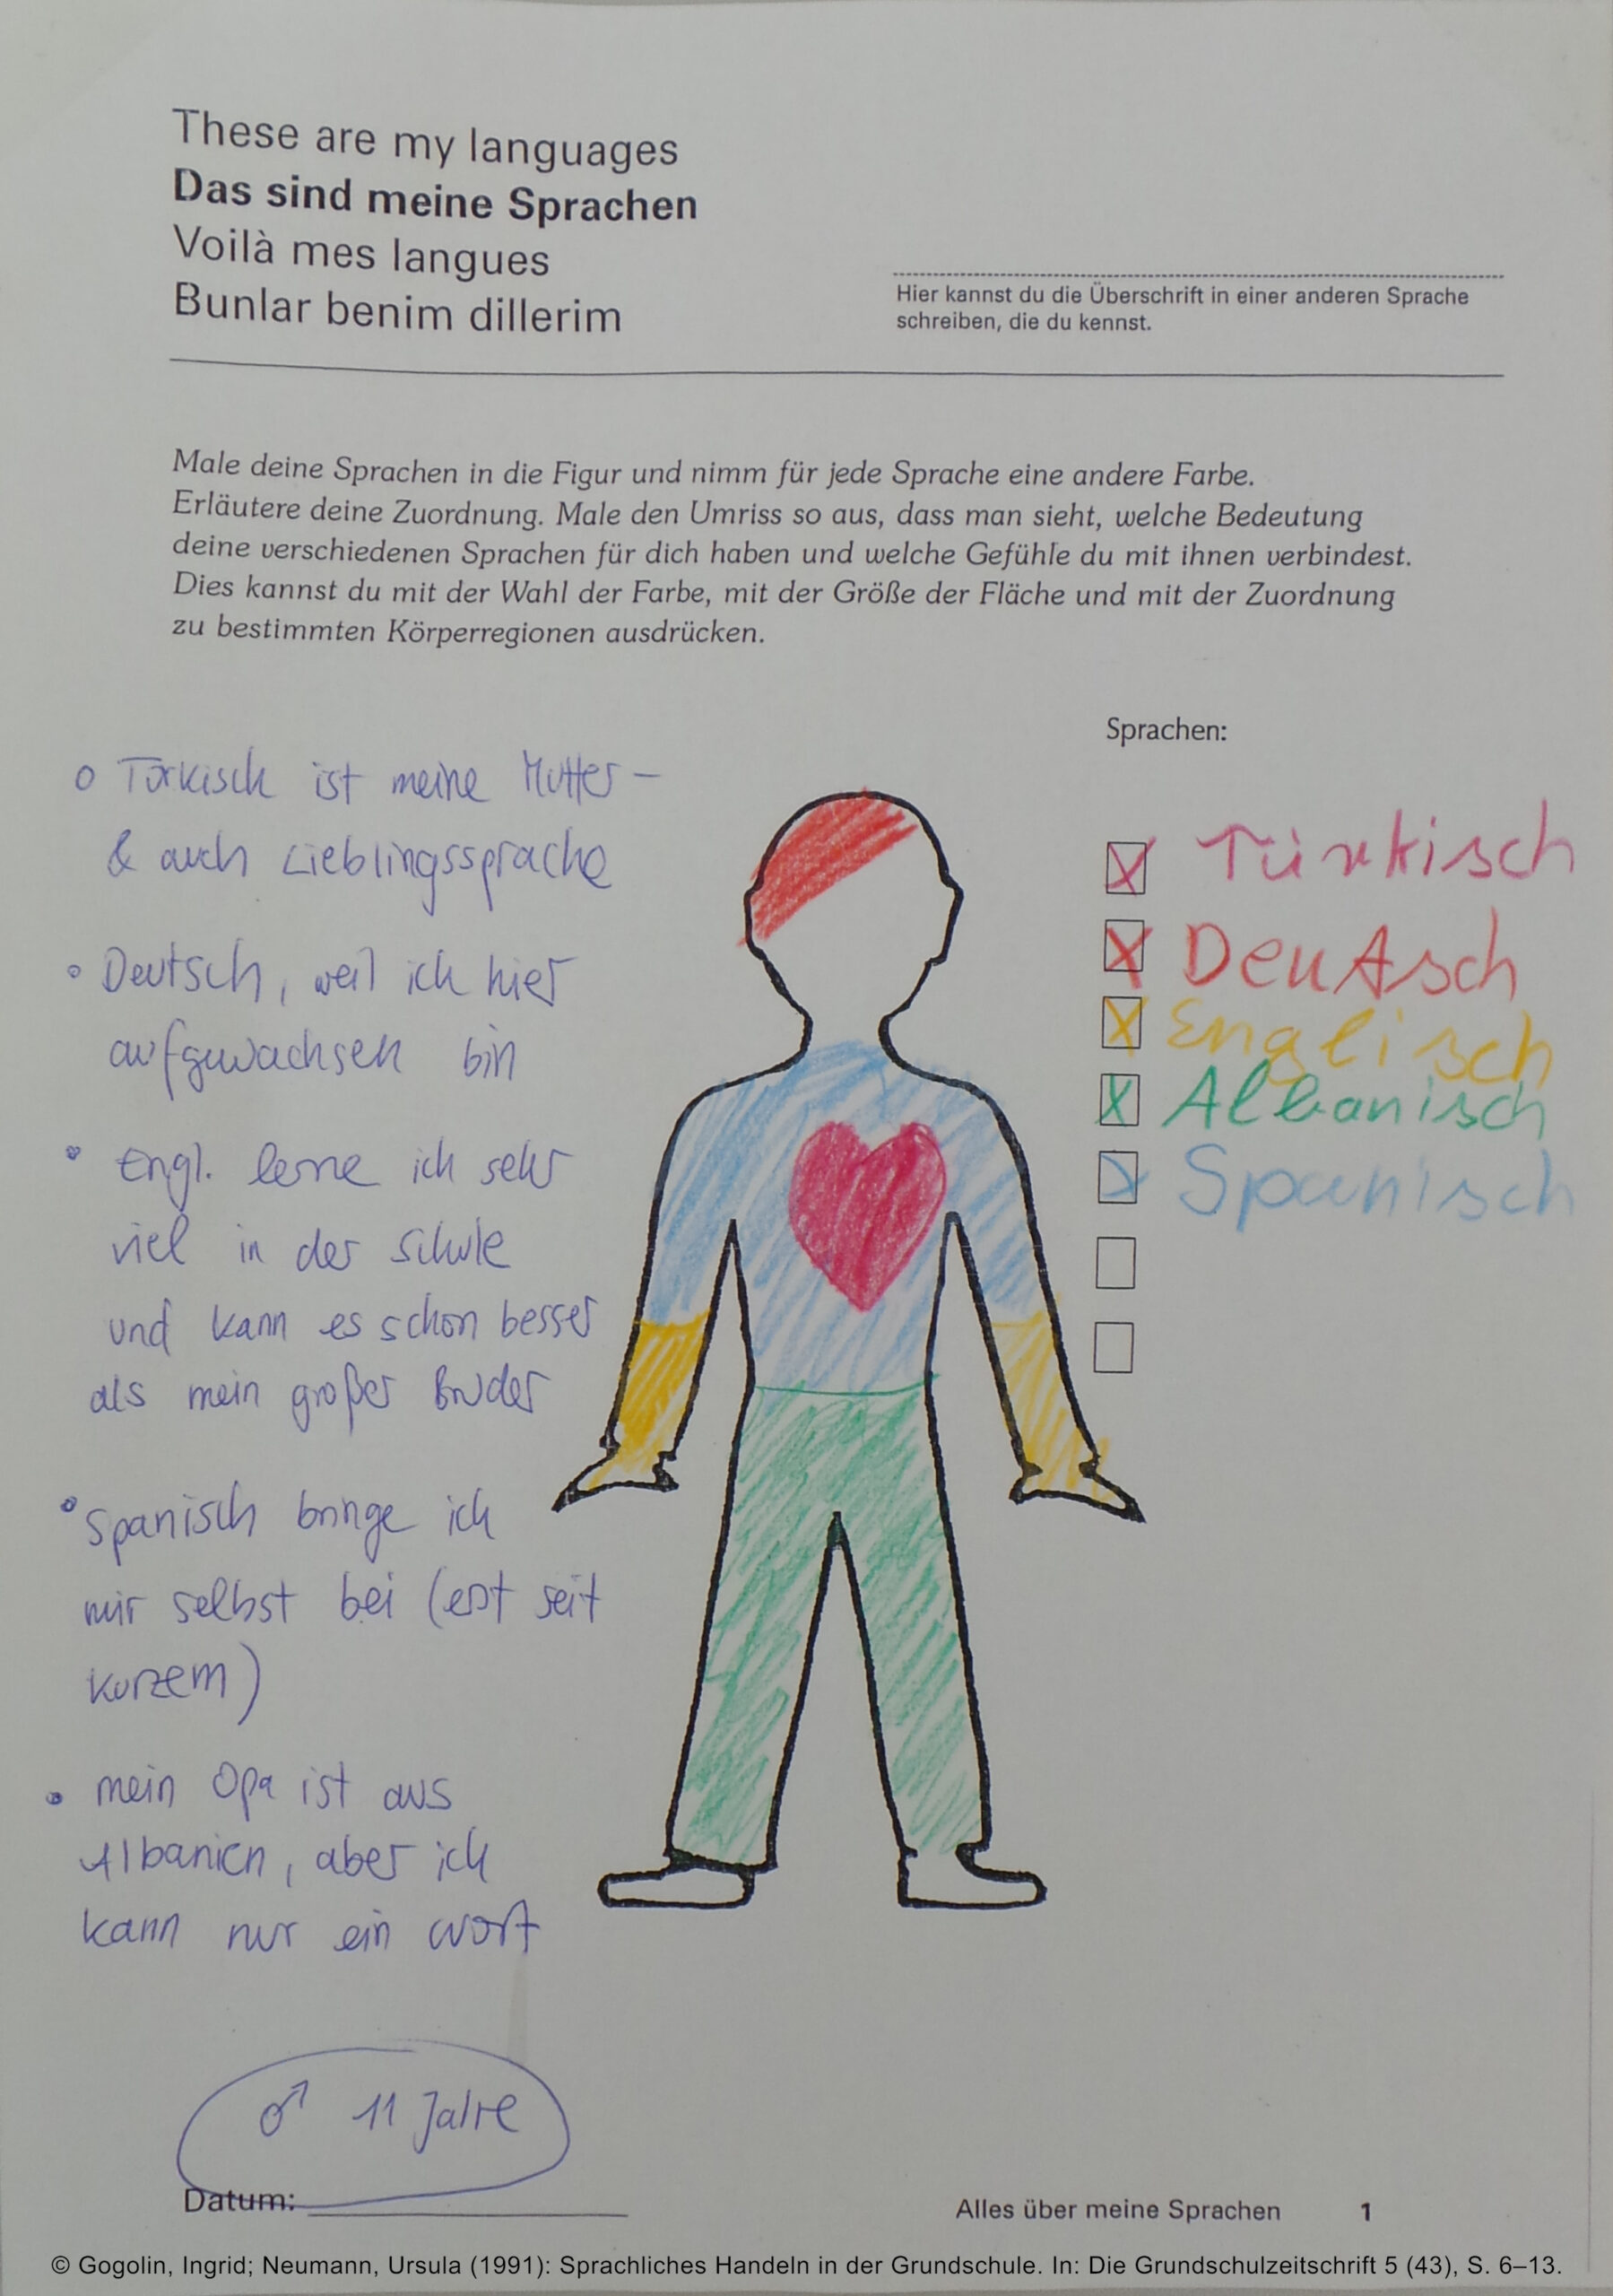 These are my languages
Das sind meine Sprachen
Voilà mes langues
Bunlar benim dillerim
Hier kannst du die Überschrift in einer anderen Sprache
schreiben, die du kennst.
Male deine Sprachen in die Figur und nimm für jede Sprache eine andere Farbe.
Erläutere deine Zuordnung. Male den Umriss so aus, dass man sieht, welche Bedeutung
deine verschiedenen Sprachen für dich haben und welche Gefühle du mit ihnen verbindest.
Dies kannst du mit der Wahl der Farbe, mit der Größe der Fläche und mit der Zuordnung
zu bestimmten Körperregionen ausdrücken.
Sprachen:
Türkisch
Deutsch
Englisch
Albanisch
Spanisch
Türkisch ist meine Mutter-
& auch Lieblingssprache
Deutsch, weil ich hier
aufgewachsen bin
Engl. lerne ich sehr
viel in der Schule
und kann es schon besser
als mein großer Bruder
Spanisch bringe ich
mir selbst bei (erst seit
kurzem)
mein Opa ist aus
Albanien, aber ich
kann nur ein Wort
♂ 11 Jahre
Datum:
Alles über meine Sprachen 1
© Gogolin, Ingrid; Neumann, Ursula (1991): Sprachliches Handeln in der Grundschule. In: Die Grundschulzeitschrift 5 (43), S. 6–13.